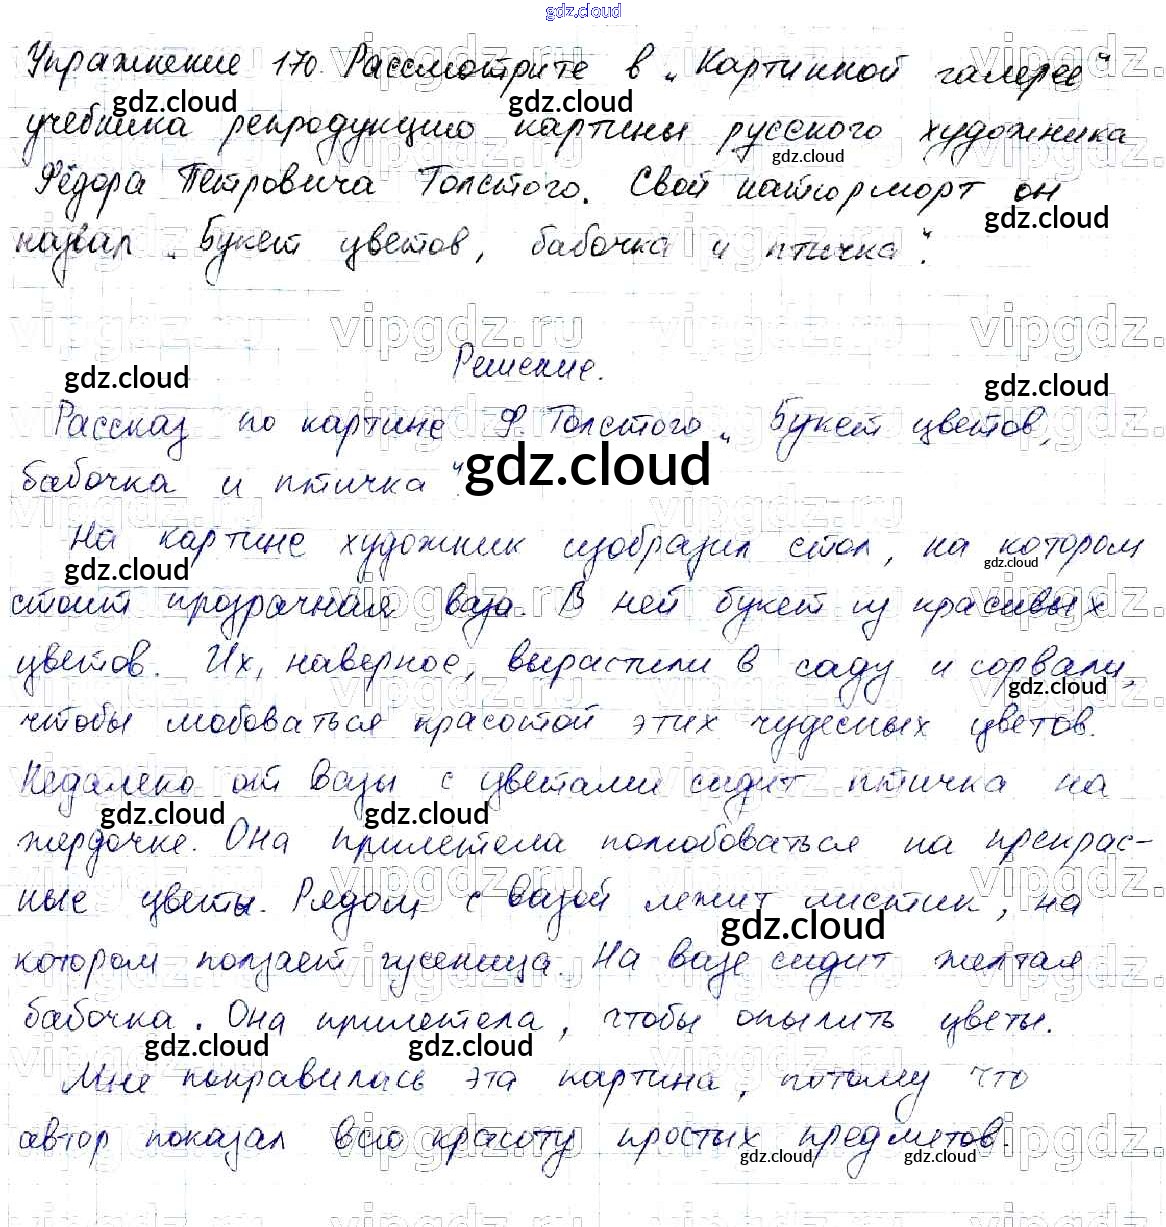 gdz.cloud
Упражнение 170. Рассмотрите в „Картинной галерее“
учебника репродукцию картины русского художника
Фёдора Петровича Толстого. Свой натюрморт он
назвал „Букет цветов, бабочка и птичка“.
Решение.
Рассказ по картине Ф. Толстого „Букет цветов,
бабочка и птичка“.
На картине художник изобразил стол, на котором
стоит прозрачная ваза. В ней букет из красивых
цветов. Их, наверное, вырастили в саду и сорвали,
чтобы любоваться красотой этих чудесных цветов.
Недалеко от вазы с цветами сидит птичка на
жердочке. Она прилетела полюбоваться на прекрас-
ные цветы. Рядом с вазой лежит листик, на
котором ползает гусеница. На вазе сидит желтая
бабочка. Она прилетела, чтобы опылить цветы.
Мне понравилась эта картина, потому что
автор показал всю красоту простых предметов.